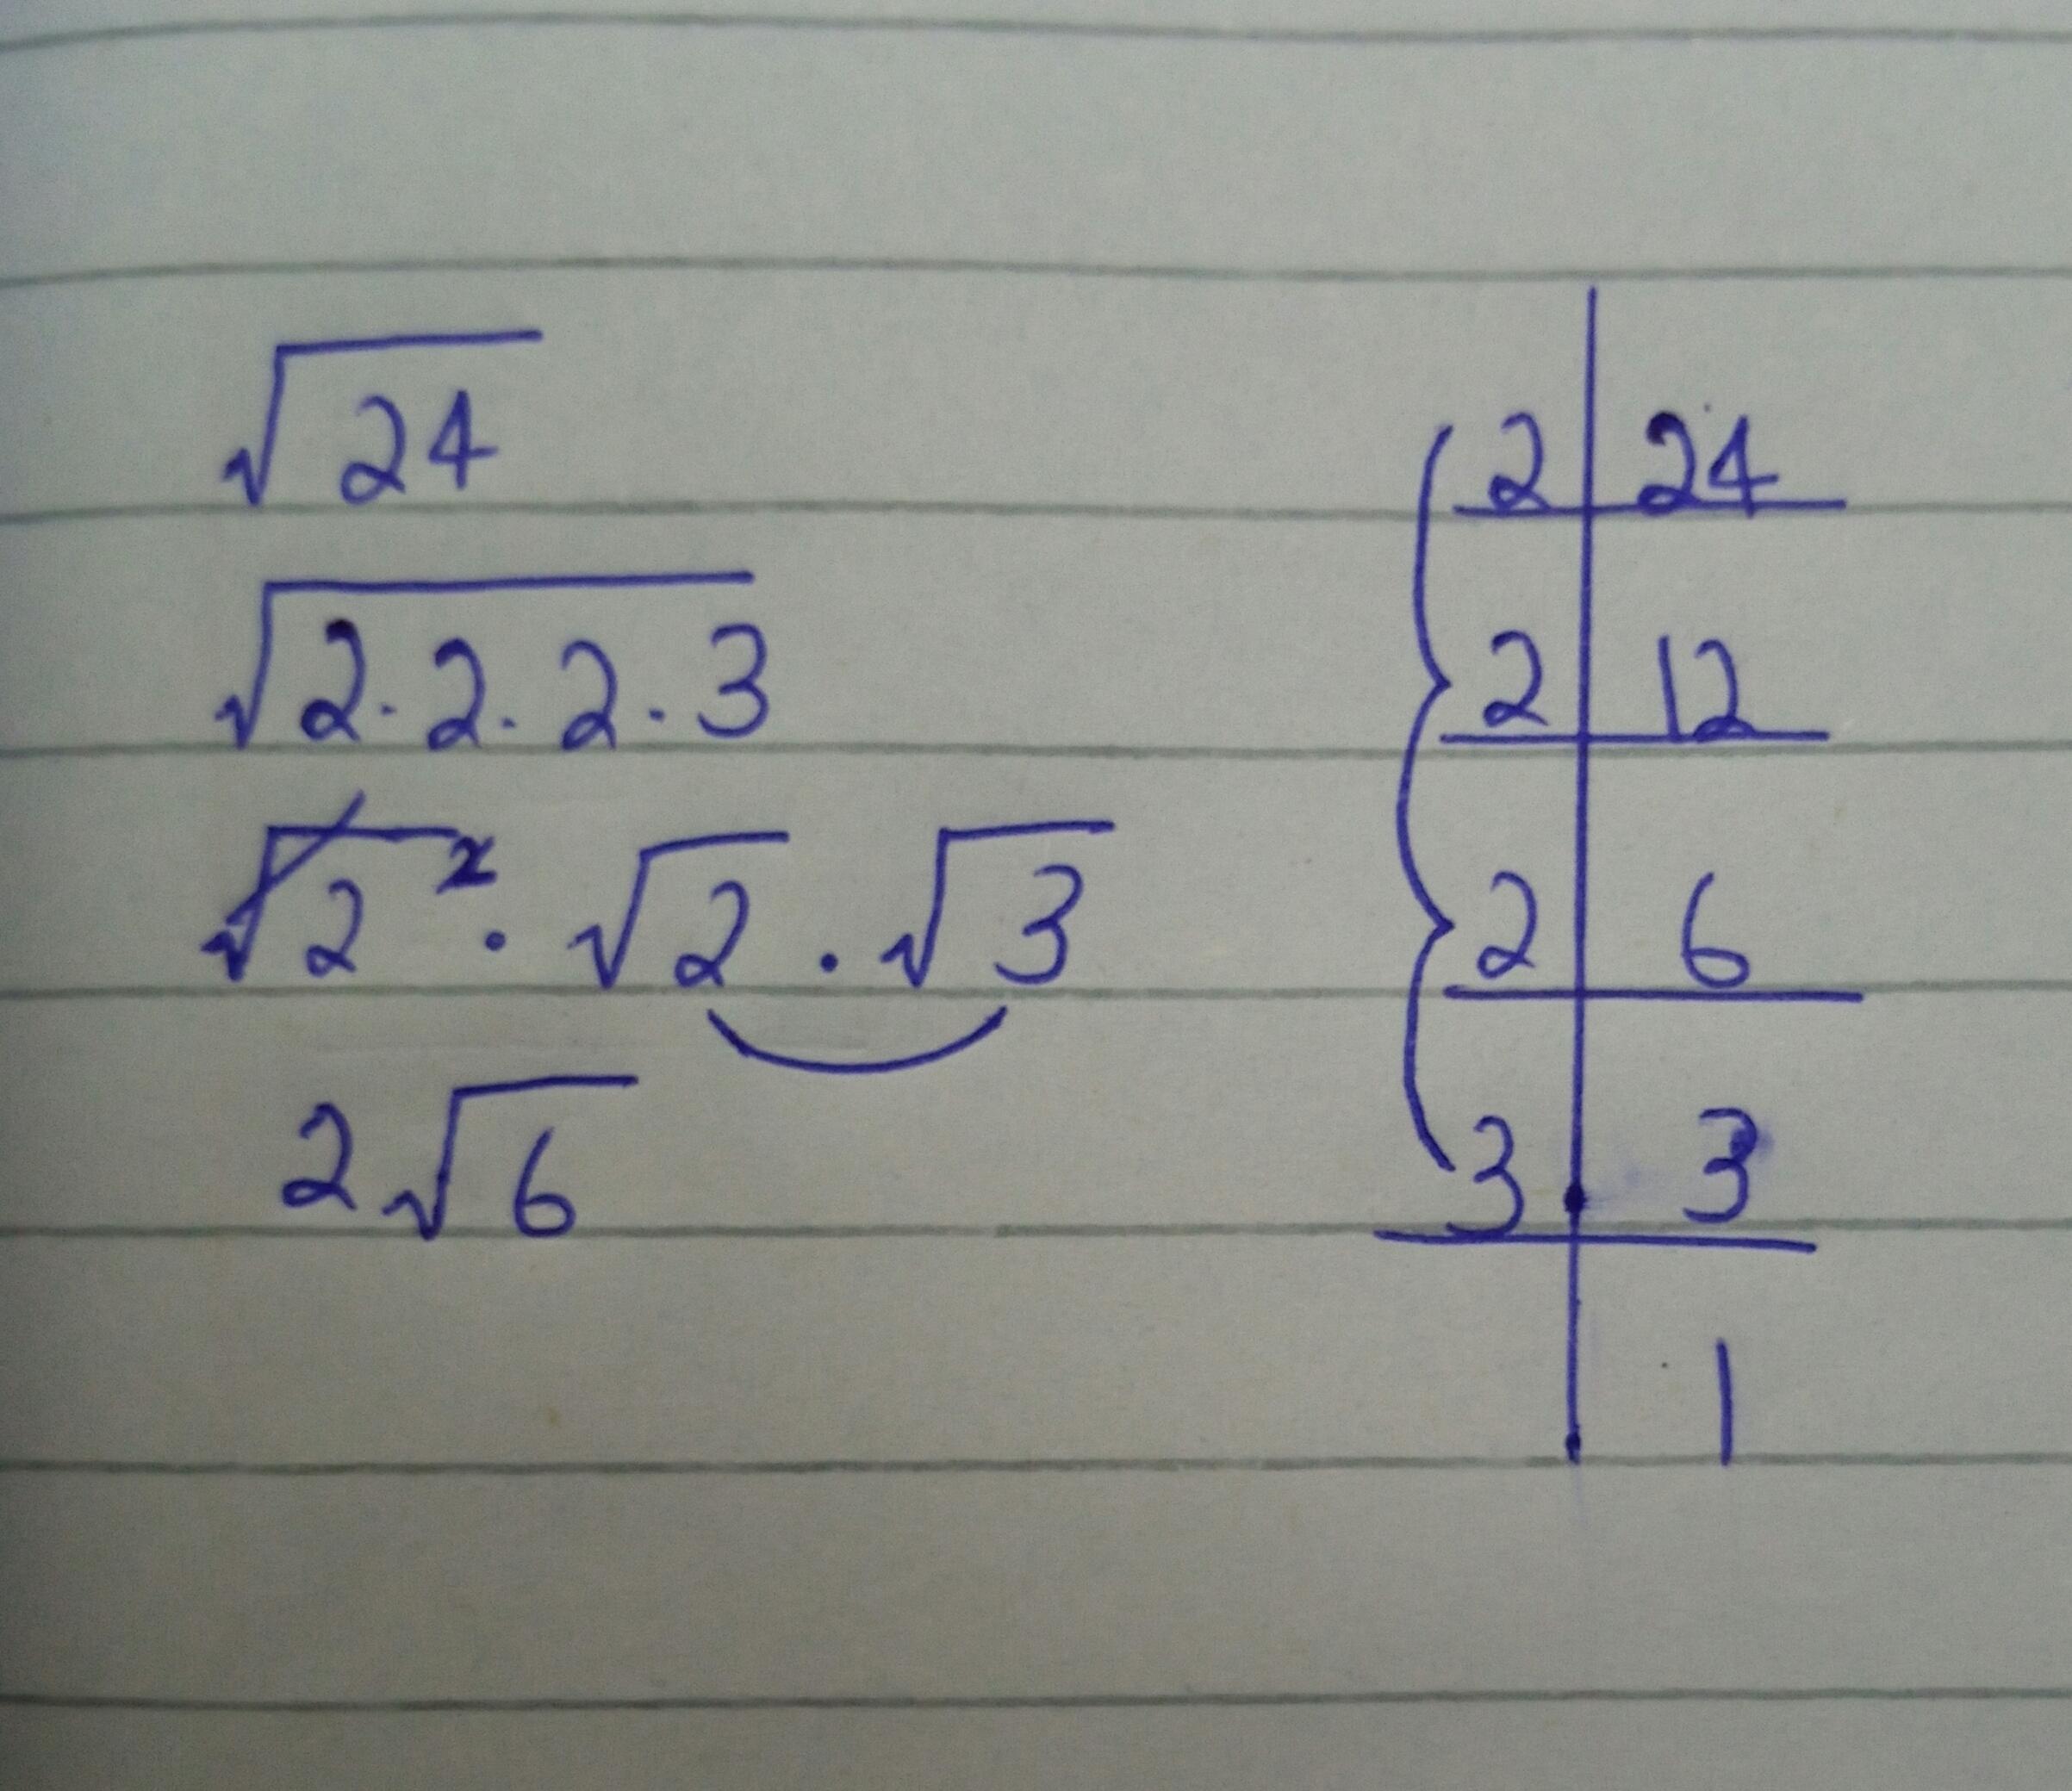 √24
√2·2·2·3
√2² · √2 · √3
2√6
2 | 24
2 | 12
2 | 6
3 | 3
1